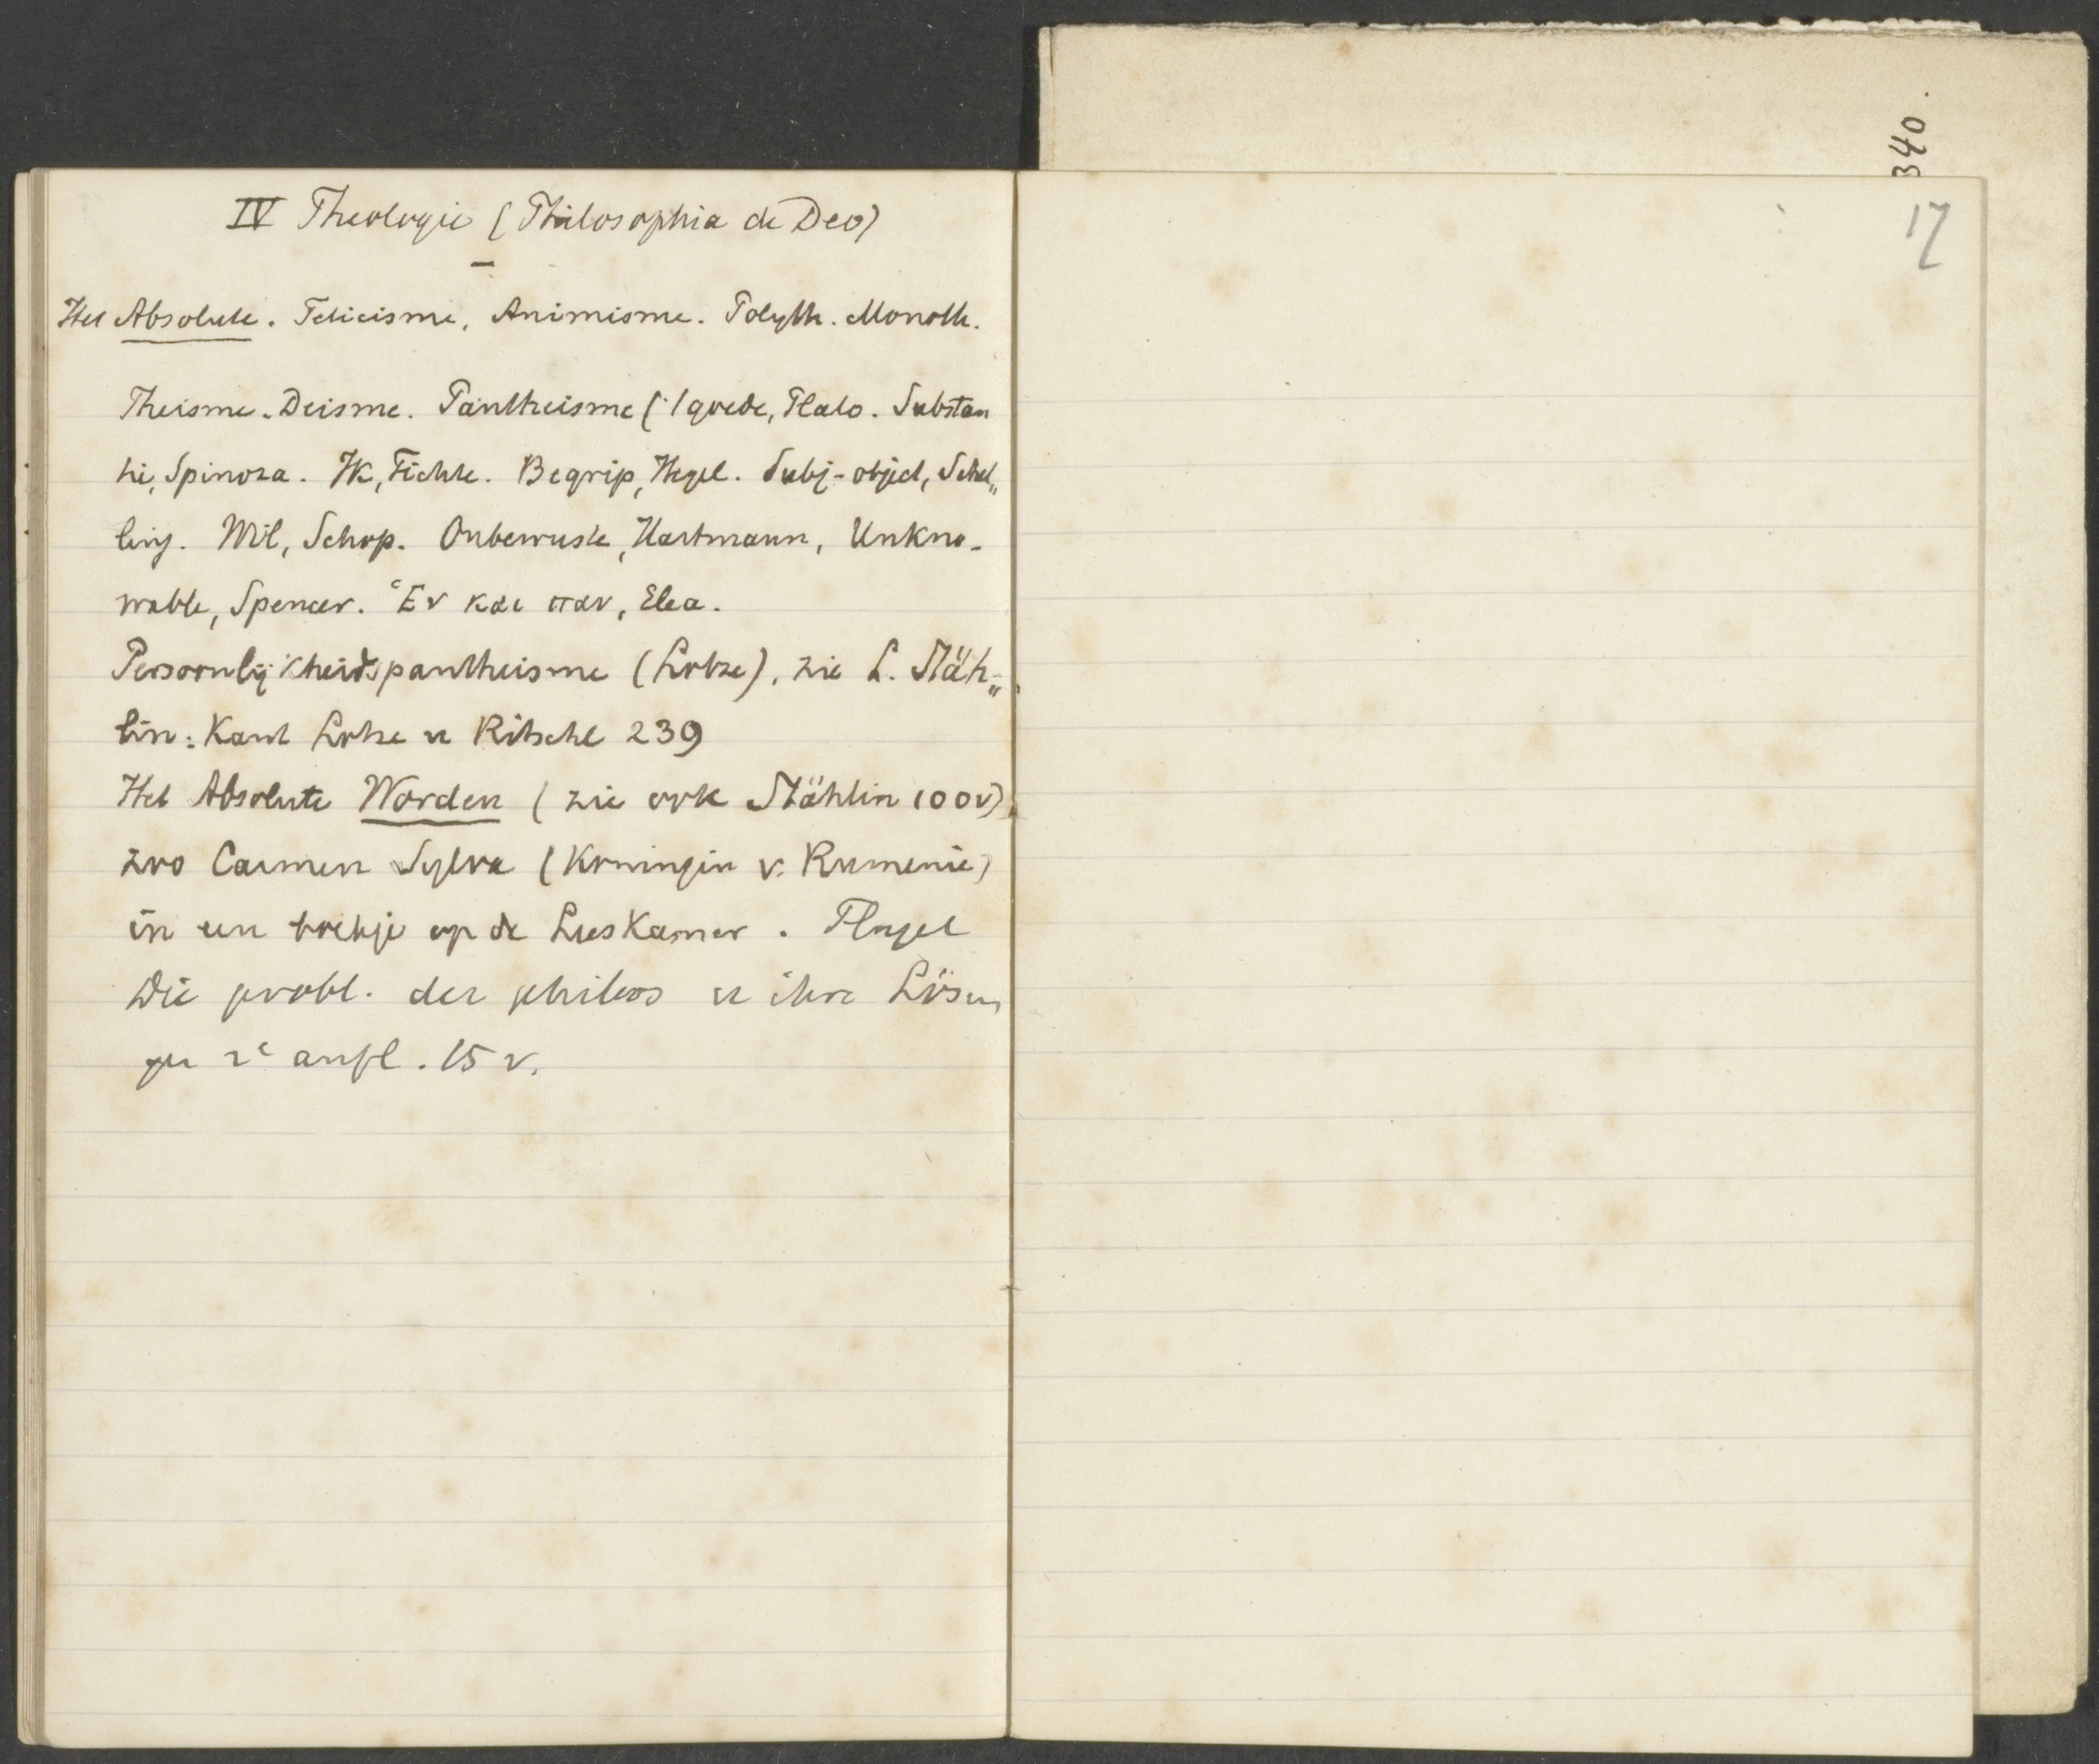 IV Theologie (Philosophia de Deo)
Het Absolute. Feticisme, Animisme. Polyth. Monoth.
Theisme. Deisme. Pantheisme ('t goede, Plato. Substan
tie, Spinoza. Ik, Fichte. Begrip, Hegel. Subj-object, Schel„
ling. Wil, Schop. Onbewuste, Hartmann, Unkno-
wable, Spencer. Ἑν και παν, Elea.
Persoonlijkheidspantheisme (Lotze), zie L. Stäh„
lin: Kant Lotze u Ritschl 239
Het Absolute Worden (zie ook Stählin 100v)
zoo Carmen Sylva (Koningin v. Rumenie)
in een boekje op de Leeskamer. Flugel
Die probl. der philos u ihre Lösun
gen 2e aufl. 15 v.
340.
17